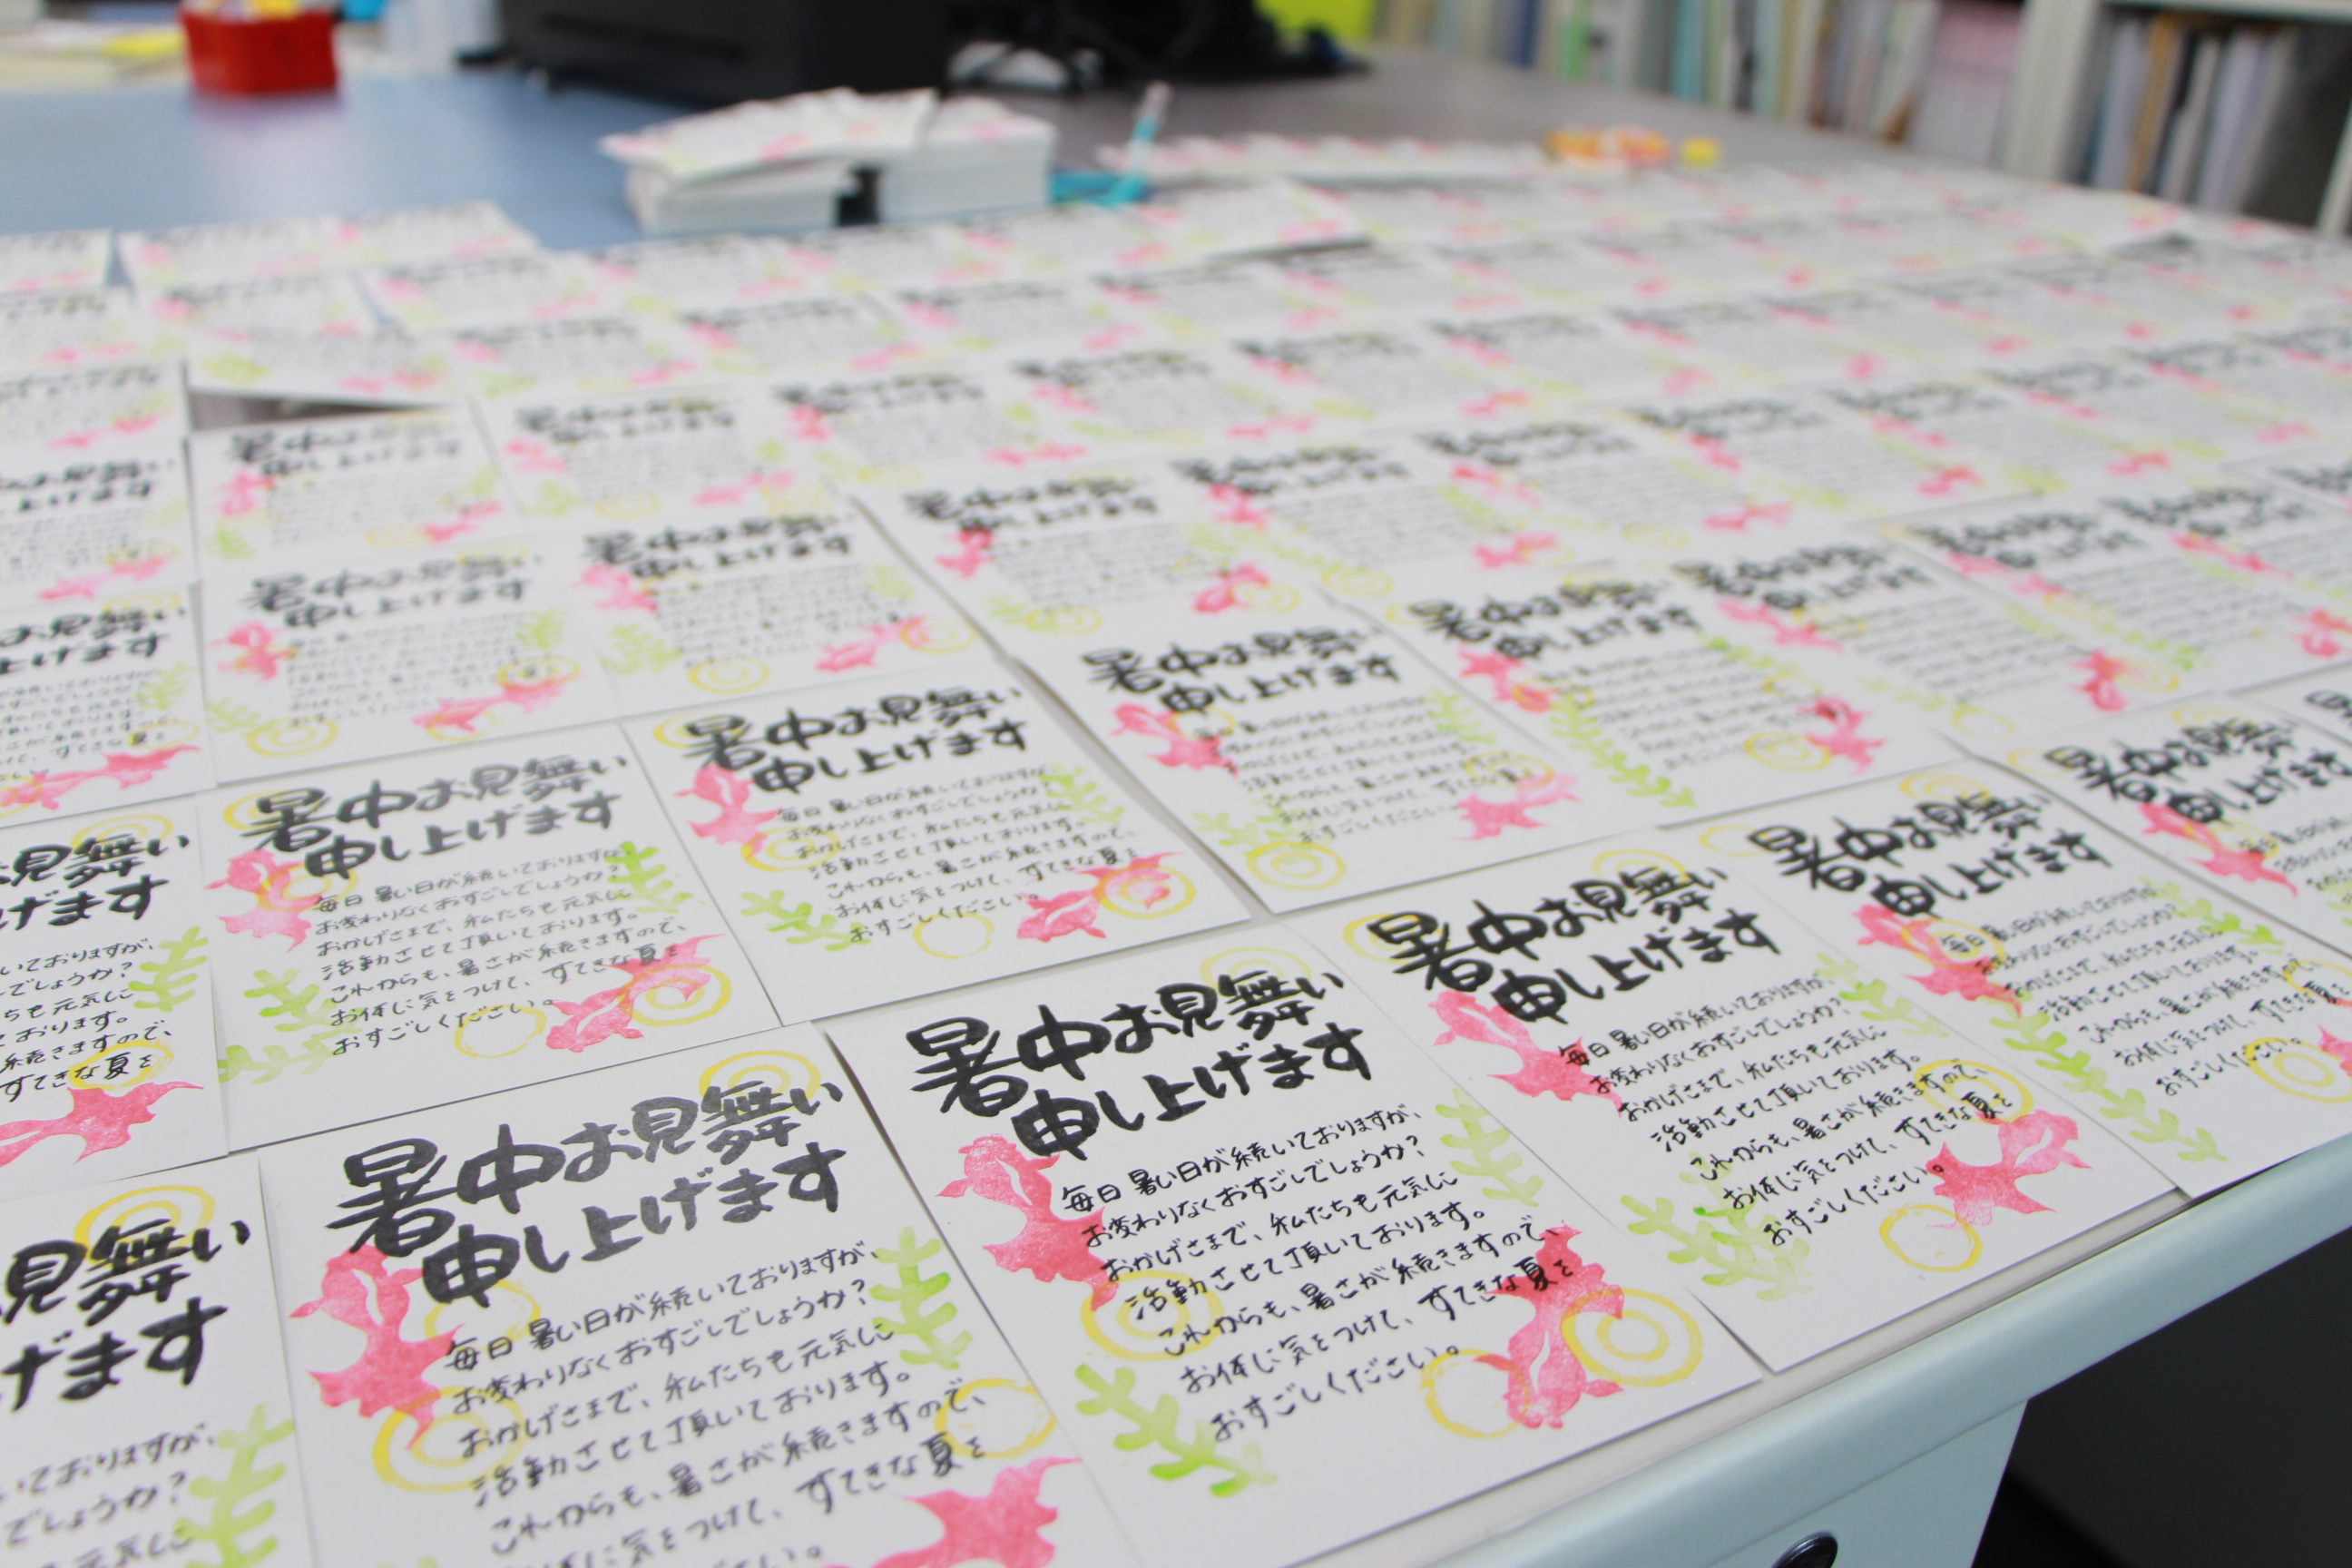 暑中お見舞い
申し上げます
毎日暑い日が続いておりますが、
お変わりなくおすごしでしょうか?
おかげさまで、私たちも元気に
活動させて頂いております。
これからも、暑さが続きますので、
お体に気をつけて、すてきな夏を
おすごしください。